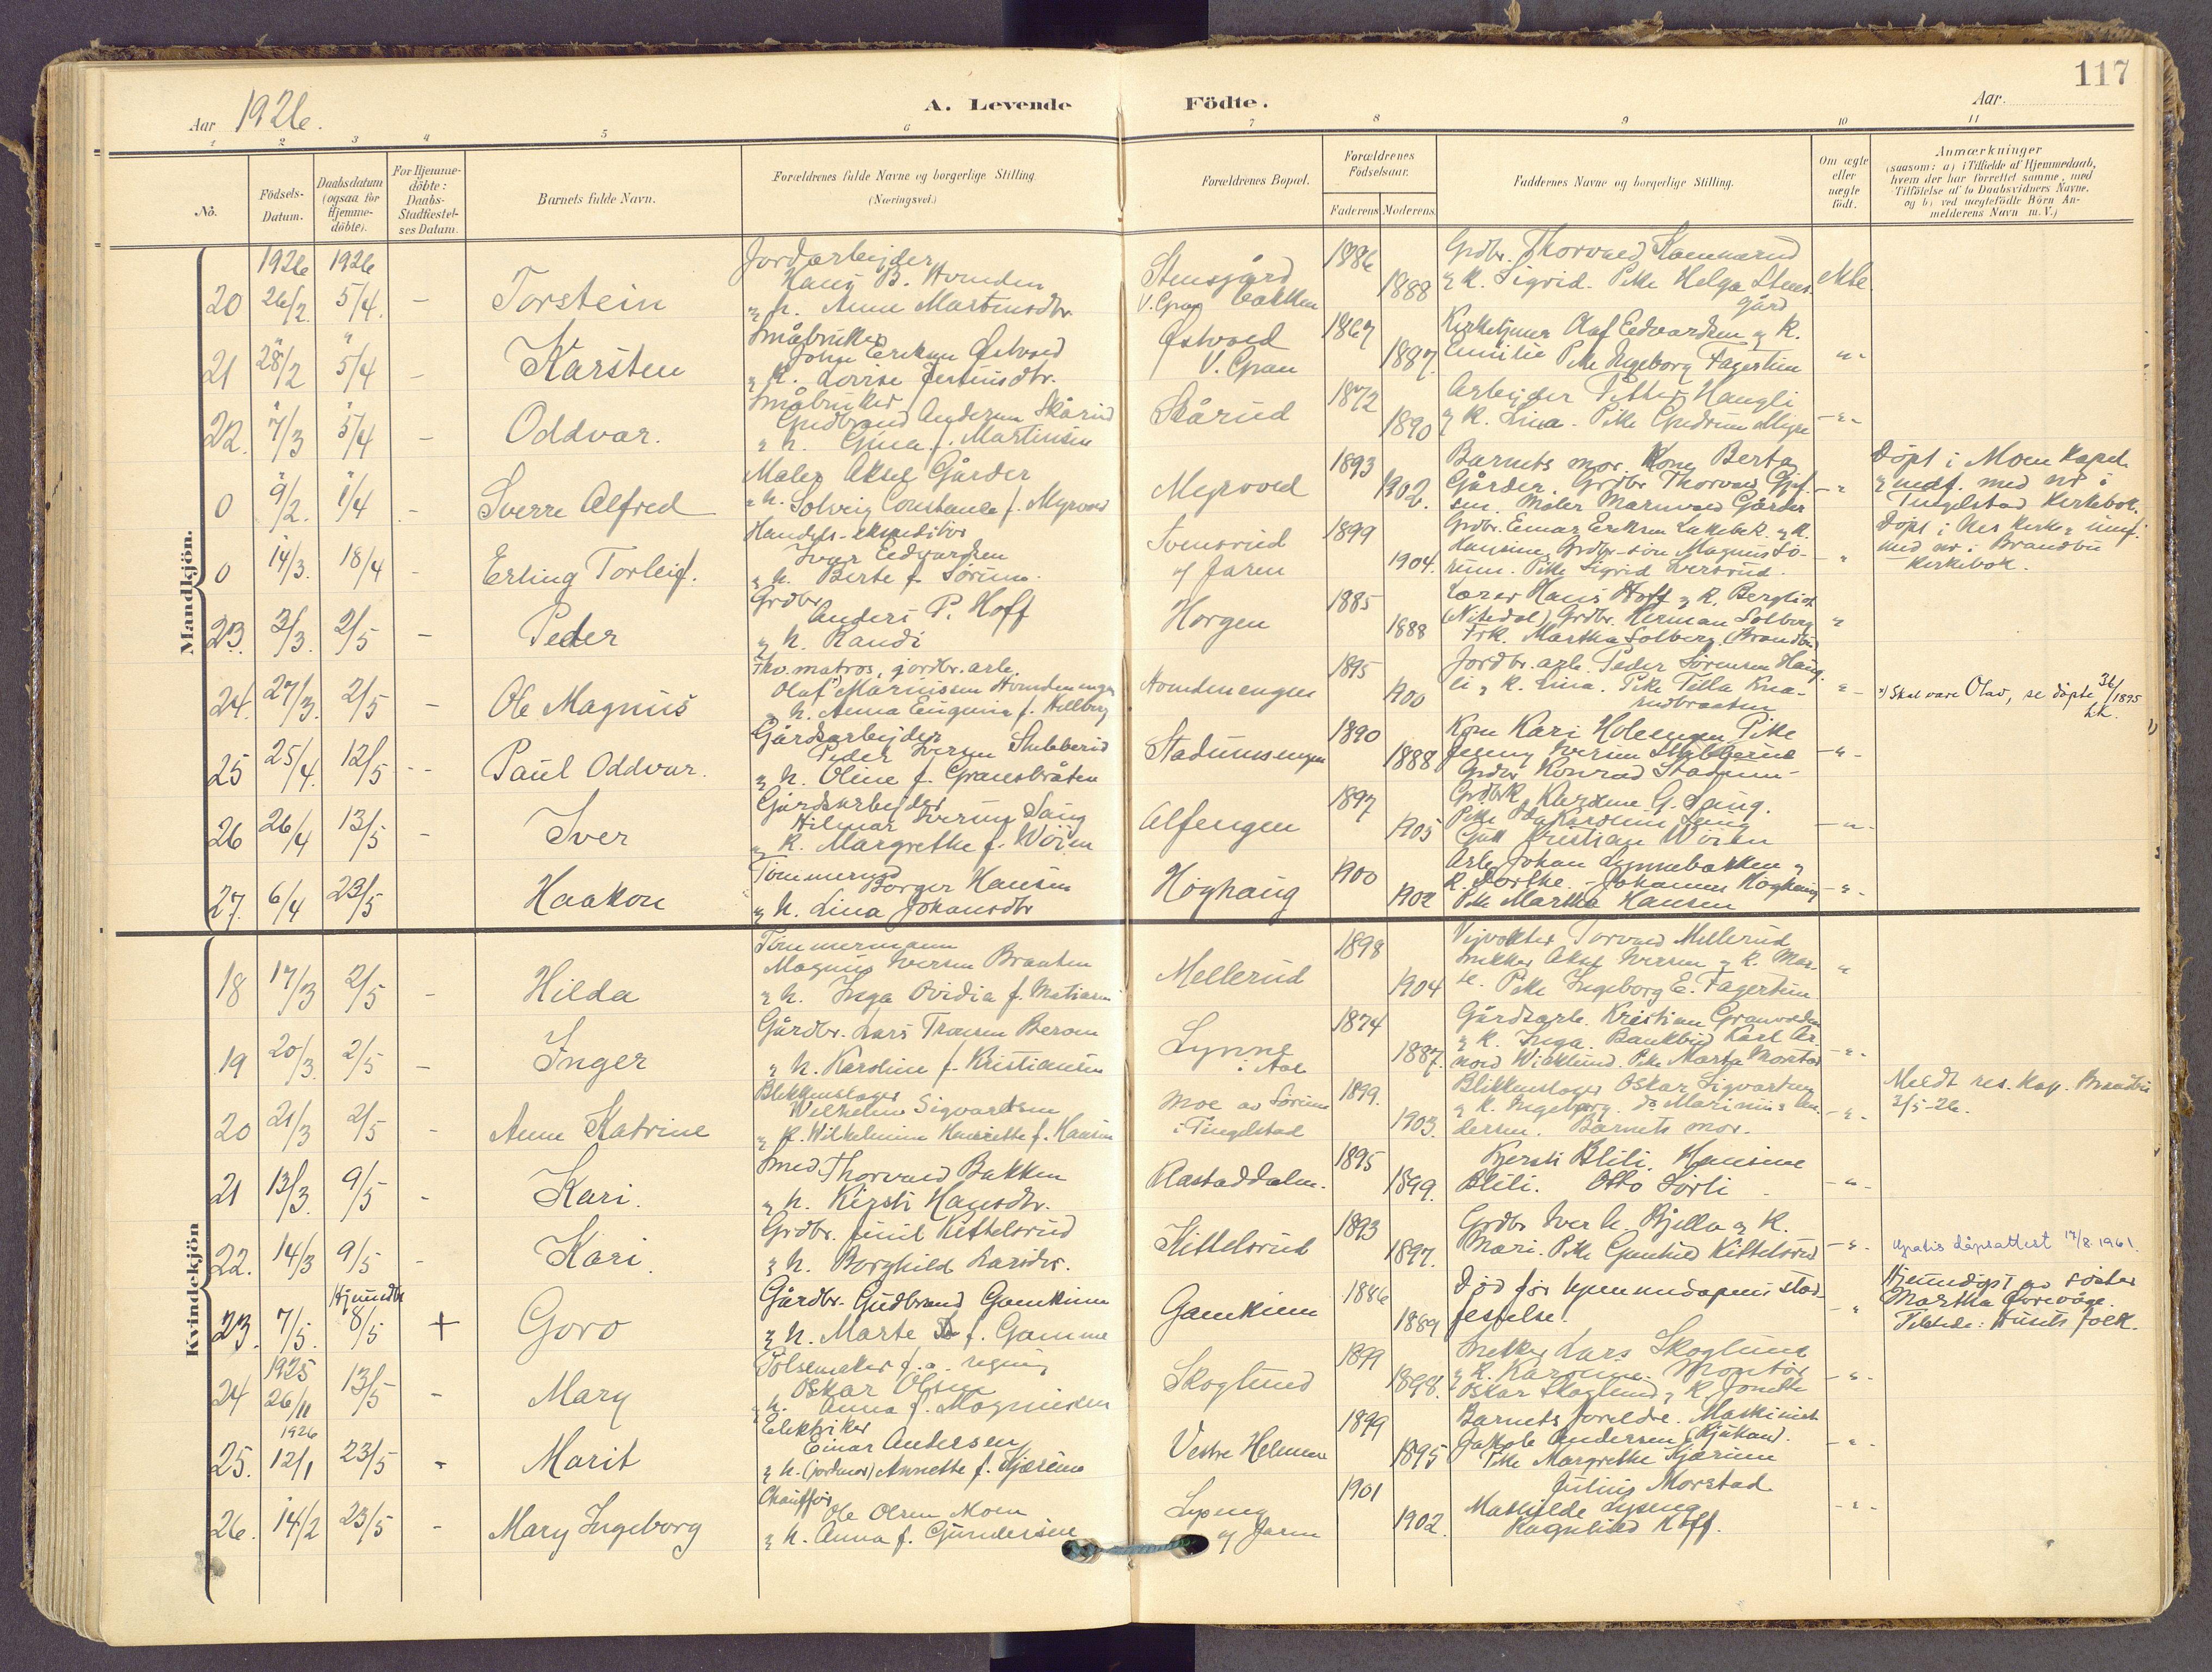 117
Aar 1926.
A. Levende Födte.
Aar.
1 2 3 4 5 6 7 8 9 10 11
No.
Födsels-Datum.
Daabsdatum (ogsaa for Hjemme-döbte).
For Hjemme-döbte: Daabs-Stadfæstel-ses Datum.
Barnets fulde Navn.
Forældrenes fulde Navne og borgerlige Stilling (Næringsvei.)
Forældrenes Bopæl.
Forældrenes Födselsaar.
Faderens Moderens
Faddernes Navne og borgerlige Stilling.
Om ægte eller uægte födt.
Anmærkninger
(saasom: a) i Tilfælde af Hjemmedaab,
hvem der har forrettet samme, med
Tilföielse af to Daabsvidners Navne.
og b) ved uægtefödte Börn An-
melderens Navn m. V.)
Mandkjön.
1926 1926
20 26/2. 5/4. - Torstein
Jordarbeijder
Hans B. Hvinden
og h. Anne Martinsdtr.
Stensgård
V. Gran
1886 1888
Grdbr. Thorvald
og k. Sigrid. Pike Helga Stens-
gård
ekte
21 28/2 5/4 - Karsten
Småbruker
Johan Eriksen Østvold
og k. Lovise Jensdtr.
Østvold
V. Gran
1867 1887.
Kirketjener Olaf Edvardsen og k.
Emilie Pike Ingeborg Fagertun
-"-
22. 7/3 5/4 - Oddvar.
Småbruker
Gudbrand Andersen Skårud
og h. Gina f. Martinsen
Skårud
1872 1890
Arbeijder Petter Haugli
og k. Lina. Pike Gudrun Myre
-"-
0 9/2. 1/4 - Sverre Alfred
Maler Aksel Gårder
og h. Solveig Constance f. Myrvold
Myrvold
1893 1902.
Barnets mor. Kone Berta
Gårder. Grdbr Thorvald
sen. Maler Marnvald Gårder
-"
Döpt i Moen Kapel
og innf. med nr i
Tingelstad Kirkebok.
0 14/3. 18/4 - Erling Torleif.
Handels-ekspeditör
Ivar Edvardsen
og h. Berte f. Sörum.
Svensrud
og Jaren
1899 1904.
Grdbr. Einar Eriksen
Hansine Grdbr-sön Magnus Sö-
rum. Pike Sigrid Iversrud.
"
Döpt i Nes Kirke, innf.
med nr i Brandbu
Kirkebok.
23. 3/3. 2/5 - Peder
Grdbr
Anders P. Hoff
og h. Randi
Horgen
1885 1888
Lærer Hans Hoff og k. Bergliot
(Nitedal), Grdbr. Herman Solberg
Frk. Martha Solberg. (Brandbu)
"
24. 27/3. 2/5 - Ole Magnus
Fhv. matros, jordbr. arb.
Olaf Marinisen Hvindenengen
og h. Anna Eugenie f. Hellberg
Hvindenengen
1895 1900
Jordbr. arb. Peder Sörensen Haug-
li og k. Lina. Pike Tilla Kna-
rudbraaten
"-
*) Skal være Olav, se döpte 36/1895
25 25/4. 12/5 -- Paul Oddvar.
Gårdsarbeijder
Peder Iversen Stubberud
og h. Oline f. Gransbråten
Stadumsengen
1890 1888
Kone Kari Holengen Pike
Jenny Iversen Stubberud
Grdbr Konrad Stadum-
-"-
26 26/4 13/5 - Iver
Gårdsarbeijder
Hilmar Iversen Saug
og k. Margrethe f. Wöien
Alfengen
1897 1905
Grdbr.k. Karoline G. Saug.
Gutt Kristian Wöien
-"-
27. 6/4 23/5 Haakon
Tömmermd
Borger Hansen
og h. Lina Johansdtr
Höghaug
1900 1902
Arb. Johan Lynnebakken og
k. Dorthe. - Johannes Höghaug
Pike Martha Hansen
-"-
Kvindekjön
18 17/3 2/5 - Hilda
Tömmermann
Magnus Iversen Braaten
og h. Inga Ovidia f. Matiasen
Mellerud
1898 1904
Veivokter Torvald Mellerud
Snekker Aksel Iversen og k. Mar-
te. Pike Ingeborg E. Fagertun
"
19 20/3. 2/5 - Inger
Gårdbr. Lars Bersven
og h. Karoline f. Kristiansen
Lynne
i Aal
1874 1887.
Gårdsarb. Kristian Granvolden
og k. Inga. Bankbud Karl Ar-
nold Wicklund. Pike Marta Morstad
-"-
20 21/3 2/5 - Anne Katrine
Blikkenslager
Wilhelm Sigvartsen
og k. Wilhelmine Henriette f. Hansen
Moe av Sörum
i Tingelstad
1899. 1903.
Blikkenslager Oskar Sigvartsen
og k. Ingeborg. do Marinius An-
dersen. Barnets mor.
-"-
Meldt res. kap. Brandbu
3/5-26.
21 13/3. 9/5 - Kari.
Smed Thorvald Bakken
og h. Kirsti Hansdtr.
Rastaddalen.
1895 1899.
Kjersti Blili. Hansine
Blili. Otto Sörli
-"-
22. 14/3 9/5 - Kari.
Grdbr. Emil Kittelsrud
og h. Borghild Larsdtr.
Kittelsrud
1893 1897.
Grdbr Iver h. Bjella og k.
Mari. Pike Gunhild Kittelsrud
-"-
Gratis dåpsattest 17/8.1961.
23. 7/5. Hjemmedbt 8/5 + Goro
Gårdbr. Gudbrand Gamkinn
og h. Marte f. Gamme
Gamkinn
1886 1889
Död för hjemmedapens stad-
festelse.
"
Hjemmedöpt av söster
Martha
Tilstede: Husets folk.
24 1925 26/11 13/5 - Mary
Pölsemaker f. e. regning
Oskar Olsen
og h. Anna f. Magnussen
Skoglund
1899 1898.
Snekker Lars Skoglund
og k. Karoline. Montör
Oskar Skoglund og k. Jonette
-"-
25. 1926 12/1 23/5 - Marit
Elektriker
Einar Andersen
og h. (jordmor) Annette f. Kjærum
Vestre Helmen
1899 1895
Barnets foreldre. Maskinist
Jakob Andersen (Rjukan).
Pike Margrethe Kjærum
-"-
26. 14/2 23/5 - Mary Ingeborg
Chauffør
Ole Olsen Moen
og h. Anna f. Gundersen
Lysen
og Jaren
1901 1902.
Julius Morstad
Mathilde Lyseng
Ragnhild Hoff.
-"-